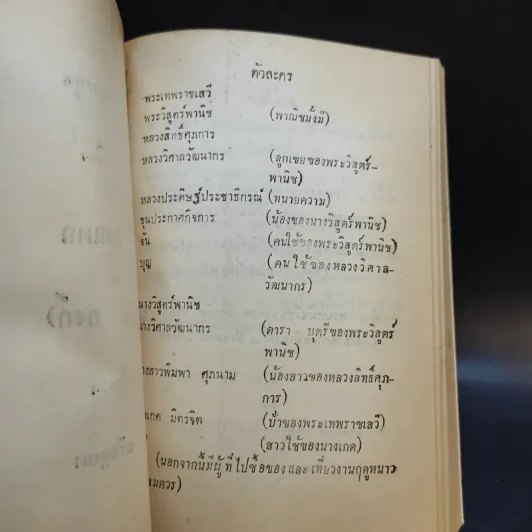 ตัวละคร
พระเทพราชเสวี
พระวิสูตร์พานิช (พาณิชมั่งมี)
หลวงสิทธิ์ศุภการ
หลวงวิศาลวัฒนากร (ลูกเขยของพระวิสูตร์-
พานิช)
หลวงประดิษฐ์ประชาธิกรณ์ (ทนายความ)
ขุนประกาศกิจการ (น้องของนางวิสูตร์พานิช)
จัน (คนใช้ของพระวิสูตร์พานิช)
บุญ (คนใช้ของหลวงวิศาล-
วัฒนากร)
นางวิสูตร์พานิช
นางวิศาลวัฒนากร (ดารา บุตรีของพระวิสูตร์
พานิช)
างสาวพิมพา ศุภนาม (น้องสาวของหลวงสิทธิ์ศุภ-
การ)
เกด มิตรจิต (ป้าของพระเทพราชเสวี)
(สาวใช้ของนางเกด)
(นอกจากนี้มีผู้ที่ไปซื้อของและเที่ยวงานฤดูหนาว
มควร)